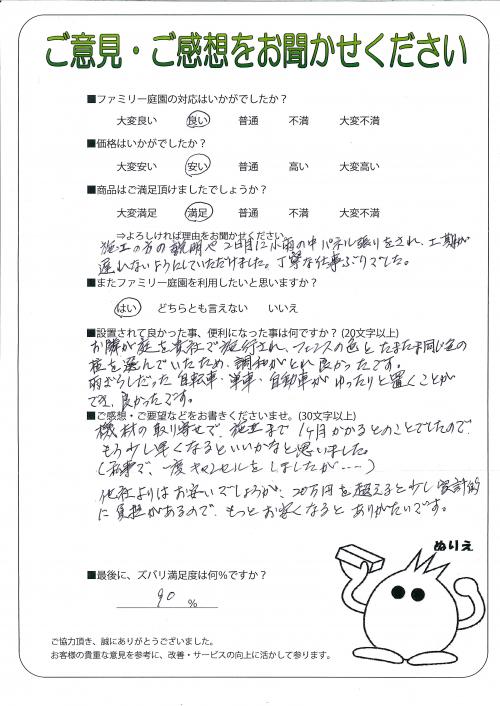 ご意見・ご感想をお聞かせください
■ファミリー庭園の対応はいかがでしたか？
大変良い 良い 普通 不満 大変不満
■価格はいかがでしたか？
大変安い 安い 普通 高い 大変高い
■商品はご満足頂けましたでしょうか？
大変満足 満足 普通 不満 大変不満
⇒よろしければ理由をお聞かせください
施工の方の説明や2日目に小雨の中パネル張りをされ、工期が
遅れないようにしていただけました。丁寧な仕事ぶりでした。
■またファミリー庭園を利用したいと思いますか？
はい どちらとも言えない いいえ
■設置されて良かった事、便利になった事は何ですか？(20文字以上)
お隣が庭を貴社で施行され、フェンスの色とたまたま同じ色の
柱を選んでいたため、調和がとれ良かったです。
雨ざらしだった自転車・単車・自動車がゆったりと置くことが
でき、良かったです。
■ご感想・ご要望などをお書きくださいませ。(30文字以上)
機材の取り寄せで、施工まで1ヶ月かかるとのことでしたので、
もう少し早くなるといいかなと思いました。
(私事で、一度キャンセルをしましたが……)
他社よりはお安いでしょうが、20万円を超えると少し家計的
に負担があるので、もっとお安くなるとありがたいです。
ぬりえ
■最後に、ズバリ満足度は何％ですか？
90 ％
ご協力頂き、誠にありがとうございました。
お客様の貴重な意見を参考に、改善・サービスの向上に活かして参ります。